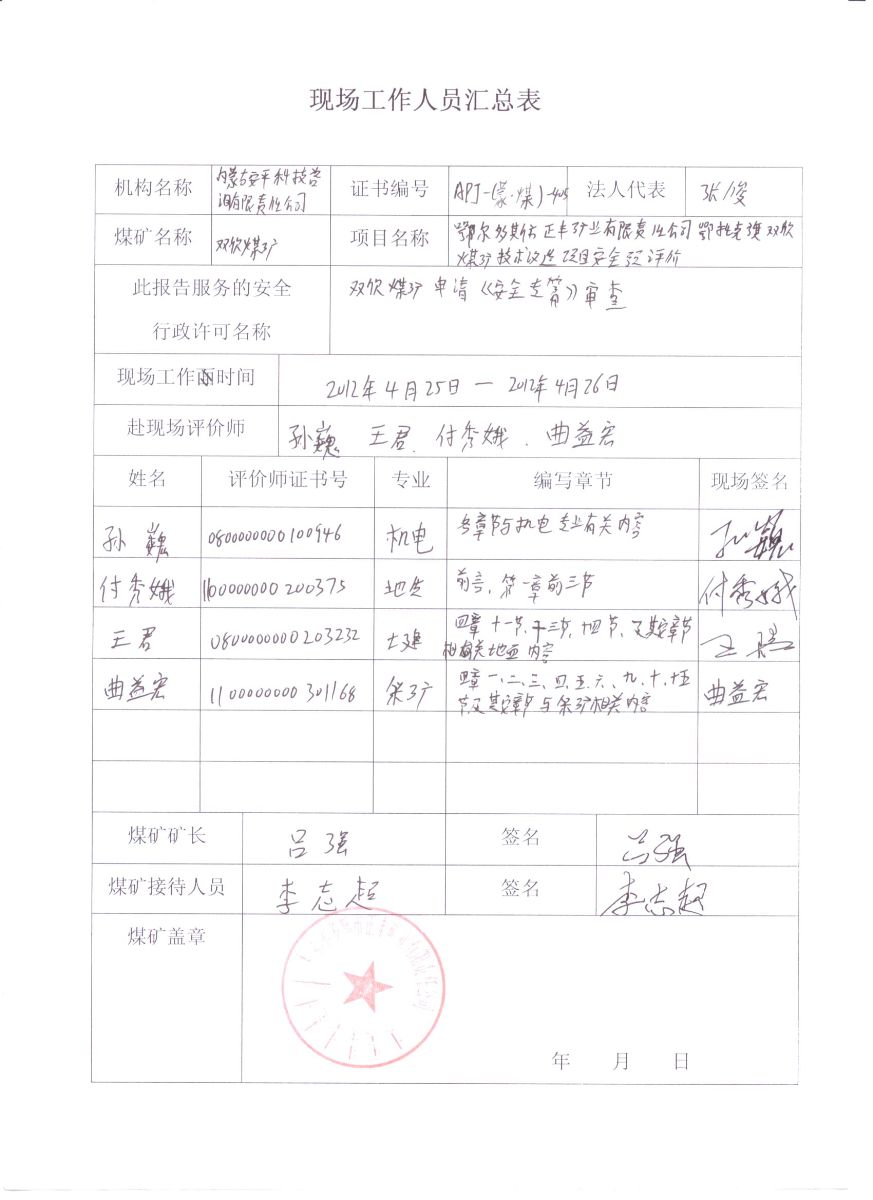 现场工作人员汇总表
机构名称 内蒙古安平科技咨
询有限责任公司 证书编号 APJ-(蒙·煤)-405 法人代表 张俊
煤矿名称 双欣煤矿 项目名称 鄂尔多斯市正丰矿业有限责任公司鄂托克旗双欣
煤矿技术改造项目安全预评价
此报告服务的安全
行政许可名称 双欣煤矿申请《安全专篇》审查
现场工作 时间 2012年4月25日 — 2012年4月26日
赴现场评价师 孙巍 王君、付秀娥、曲益宏
姓名 评价师证书号 专业 编写章节 现场签名
孙巍 0800000000100946 机电 各章节与机电专业有关内容 孙巍
付秀娥 1100000000200375 地质 前言、第一章前三节 付秀娥
王君 0800000000203232 土建 四章十一节、十三节、十四节、及其它章节
相关地面内容
曲益宏 1100000000301168 采矿 四章一、二、三、四、五、六、九、十、十五
节及其它章节与采矿相关内容 曲益宏
煤矿矿长 吕强 签名 吕强
煤矿接待人员 李志超 签名 李志超
煤矿盖章
年 月 日